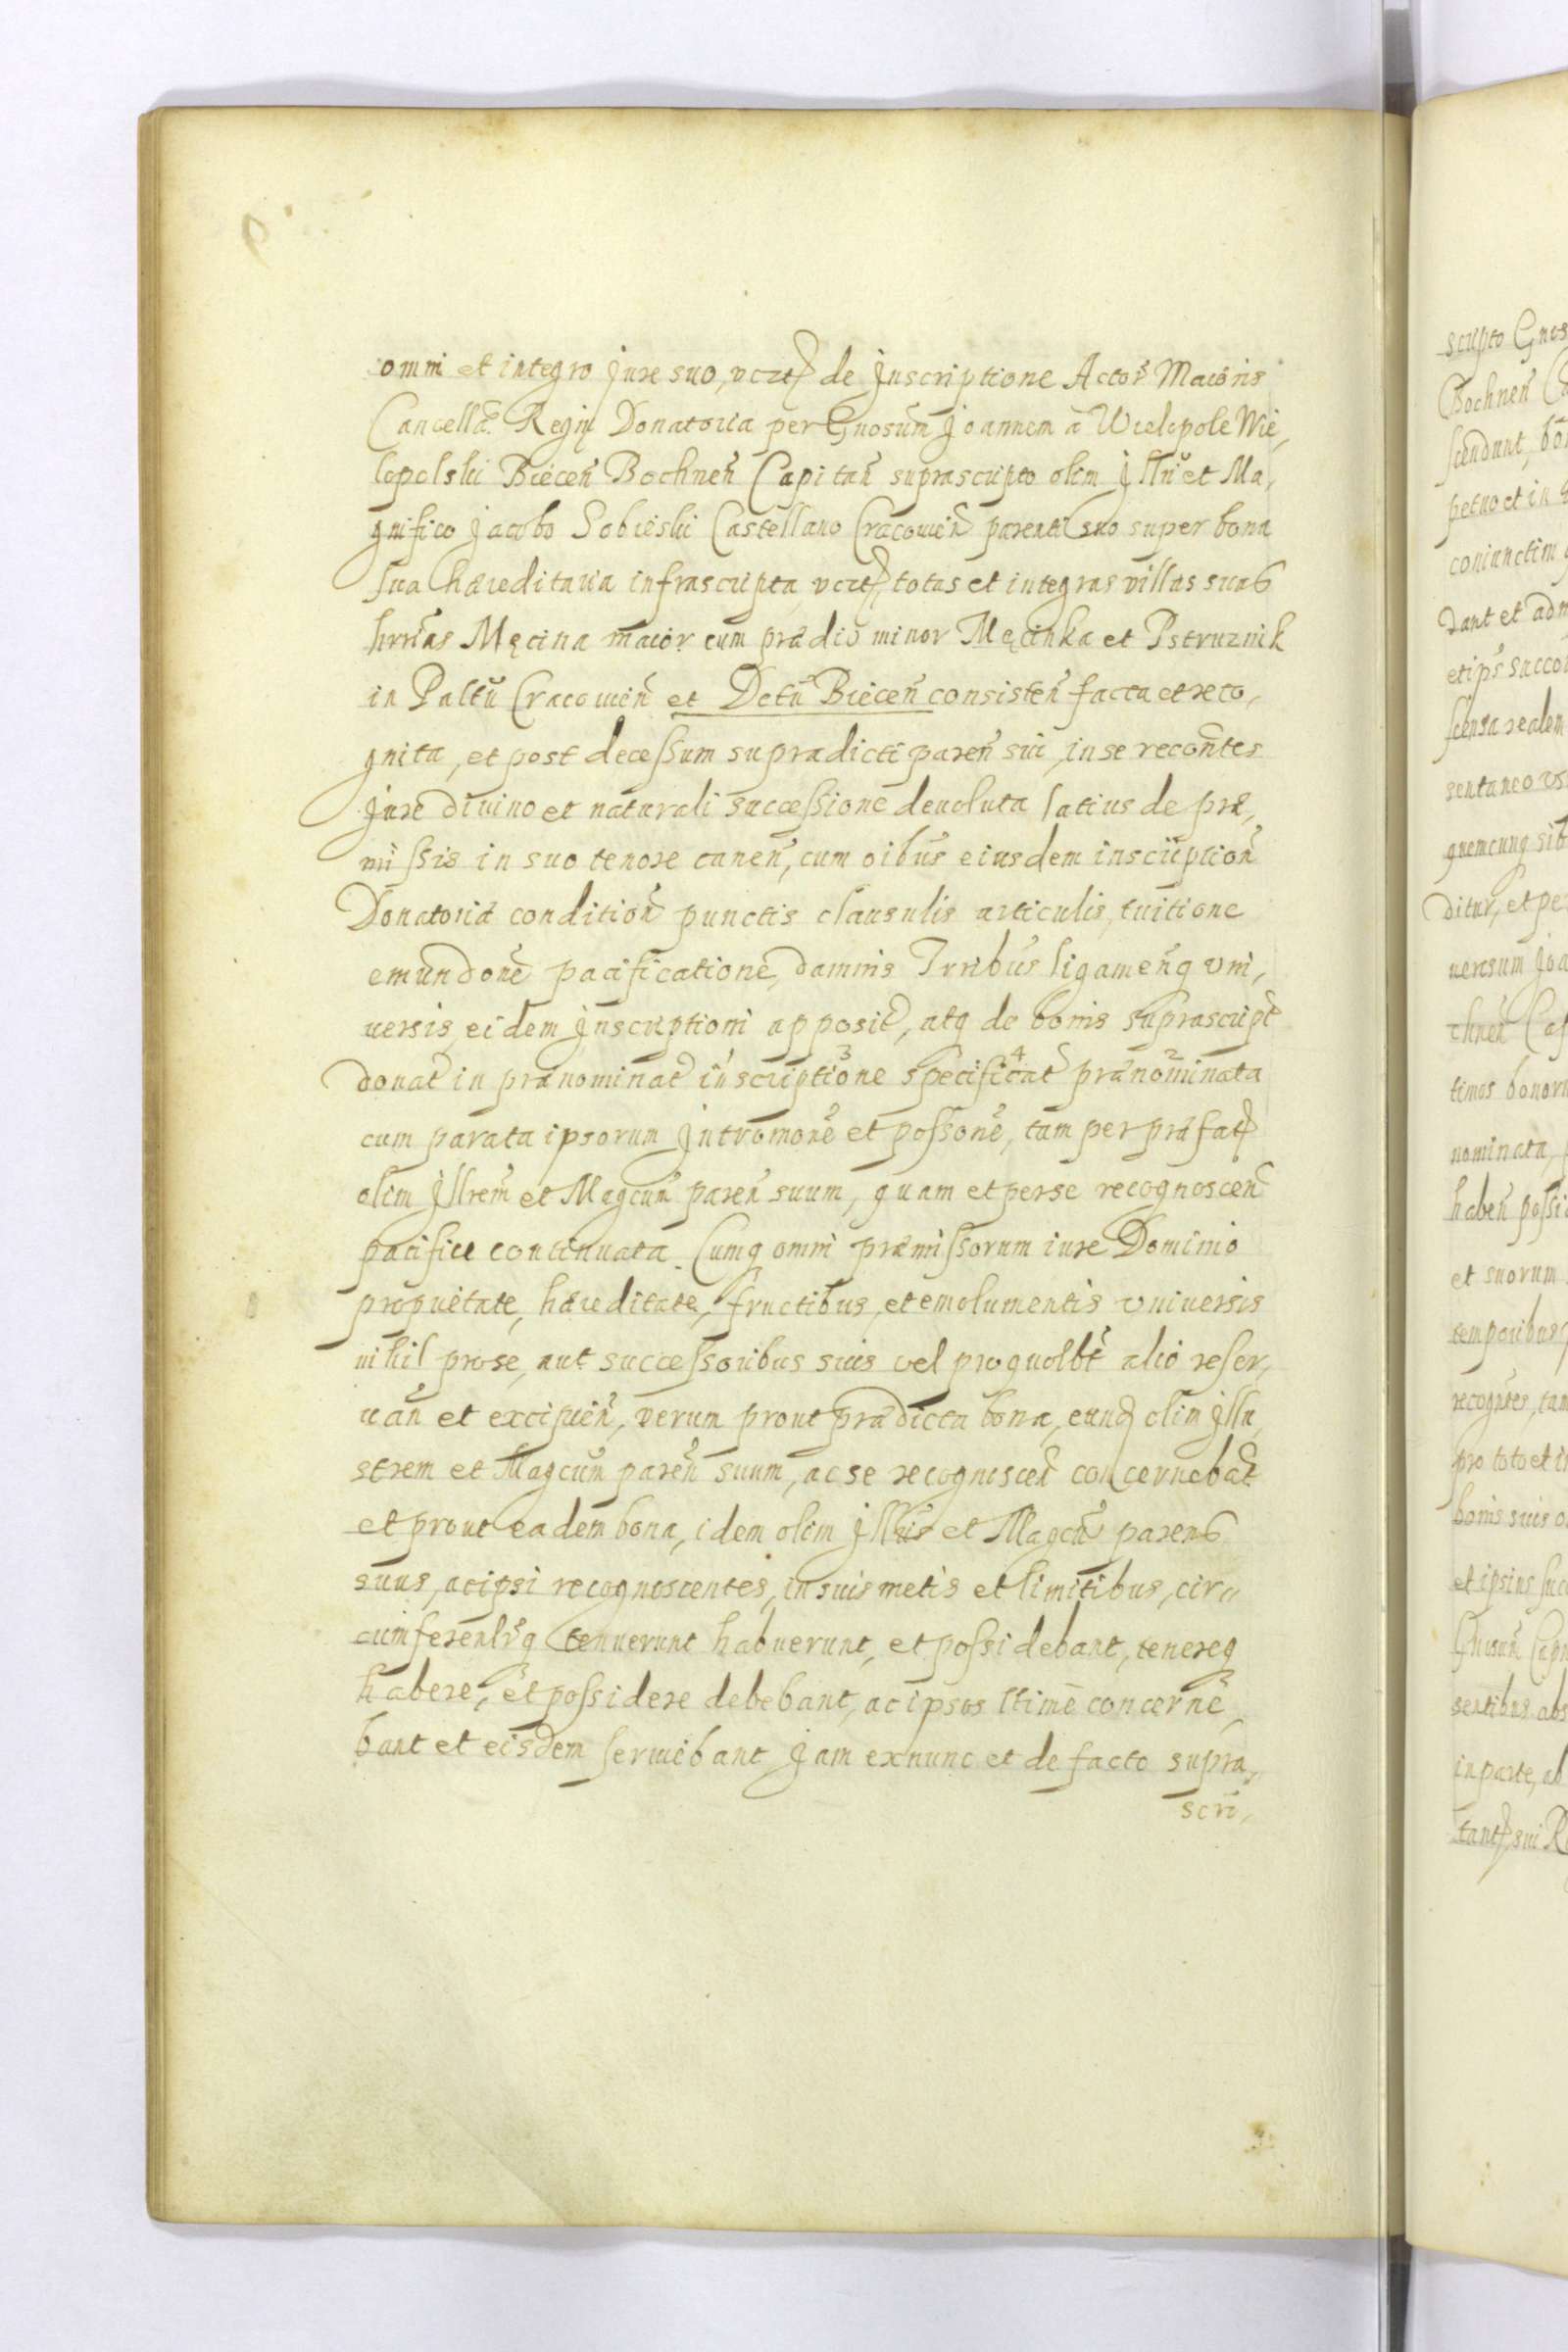 omni et integro Jure suo, vczt de Inscriptione Actor̃ Maioris
Cancellæ Regni Donatoria per Gnosum Joannem à Wielopole Wie,
lopolski Biecen̄ Bochnen̄ Capitan̄ suprascripto olim Illri et Ma,
gnifico Jacobo Sobieski Castellano Cracovien̄ parenti suo super bona
sua hæreditaria infrascripta, vczt, totas et integras villas suas
hrrias Męcina maior cum prædio minor Męcinka et Pstruznik
in Paltu Cracovien̄ et Dctu Biecen̄ consisten̄ facta et reco,
gnita, et post decessum supradicti paren̄ sui, in se recon̄tes
Jure divino et naturali successione devoluta latius de præ,
missis in suo tenore canen̄, cum oibus eiusdem inscription̄
Donatoriæ condition̄ punctis clausulis articulis, tuitione
emundone pacificatione, damnis Irribus ligamenq vni,
uersis, eidem Inscriptioni apposit, atq de bonis suprascript
donat in prænominat inscriptione 3 specificat 4 prænominata 2
cum parata ipsorum Intromone et possone, tam per præfat
olim Illrem et Magcum paren̄ suum, quam et per se recognoscen̄
pacifice continuata. Cumq omni præmissorum iure Dominio
proprietate, hæreditate, fructibus, et emolumentis vniuersis
nihil pro se, aut successoribus suis vel pro quolbt alio reser,
uan̄ et excipien̄, verum prout prædicta bona, eund olim Illu,
strem et Magcum paren̄ suum, ac se recognoscen̄ concernebat
et prout eadem bona, idem olim Illris et Magcus parens
suus, ac ipsi recognoscentes, in suis metis et limitibus, cir,,
cumferentysq tenuerunt habuerunt, et possidebant, tenereq
habere, et possidere debebant, ac ipsos ltime concerne,
bant et eisdem serviebant Jam ex nunc et de facto supra,
scri,